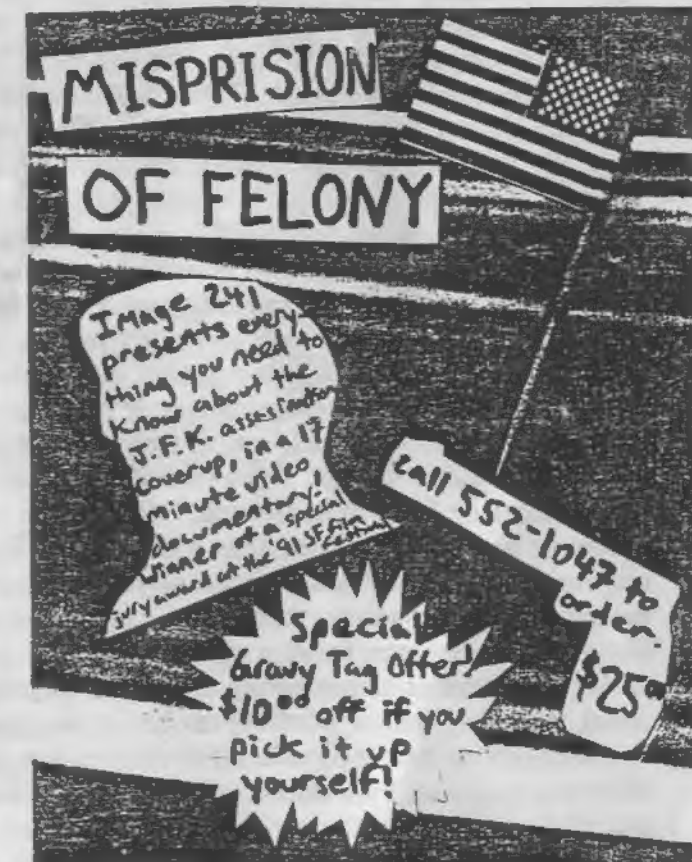 MISPRISION
OF FELONY
Image 241
presents every-
thing you need to
know about the
J.F.K. assasination
coverup, in a 17
minute video
documentary,
winner of a special
jury award at the '91 SF Film
Festival
call 552-1047 to
order.
$25⁰⁰
Special
Gravy Tag Offer!
$10⁰⁰ off if you
pick it up
yourself!